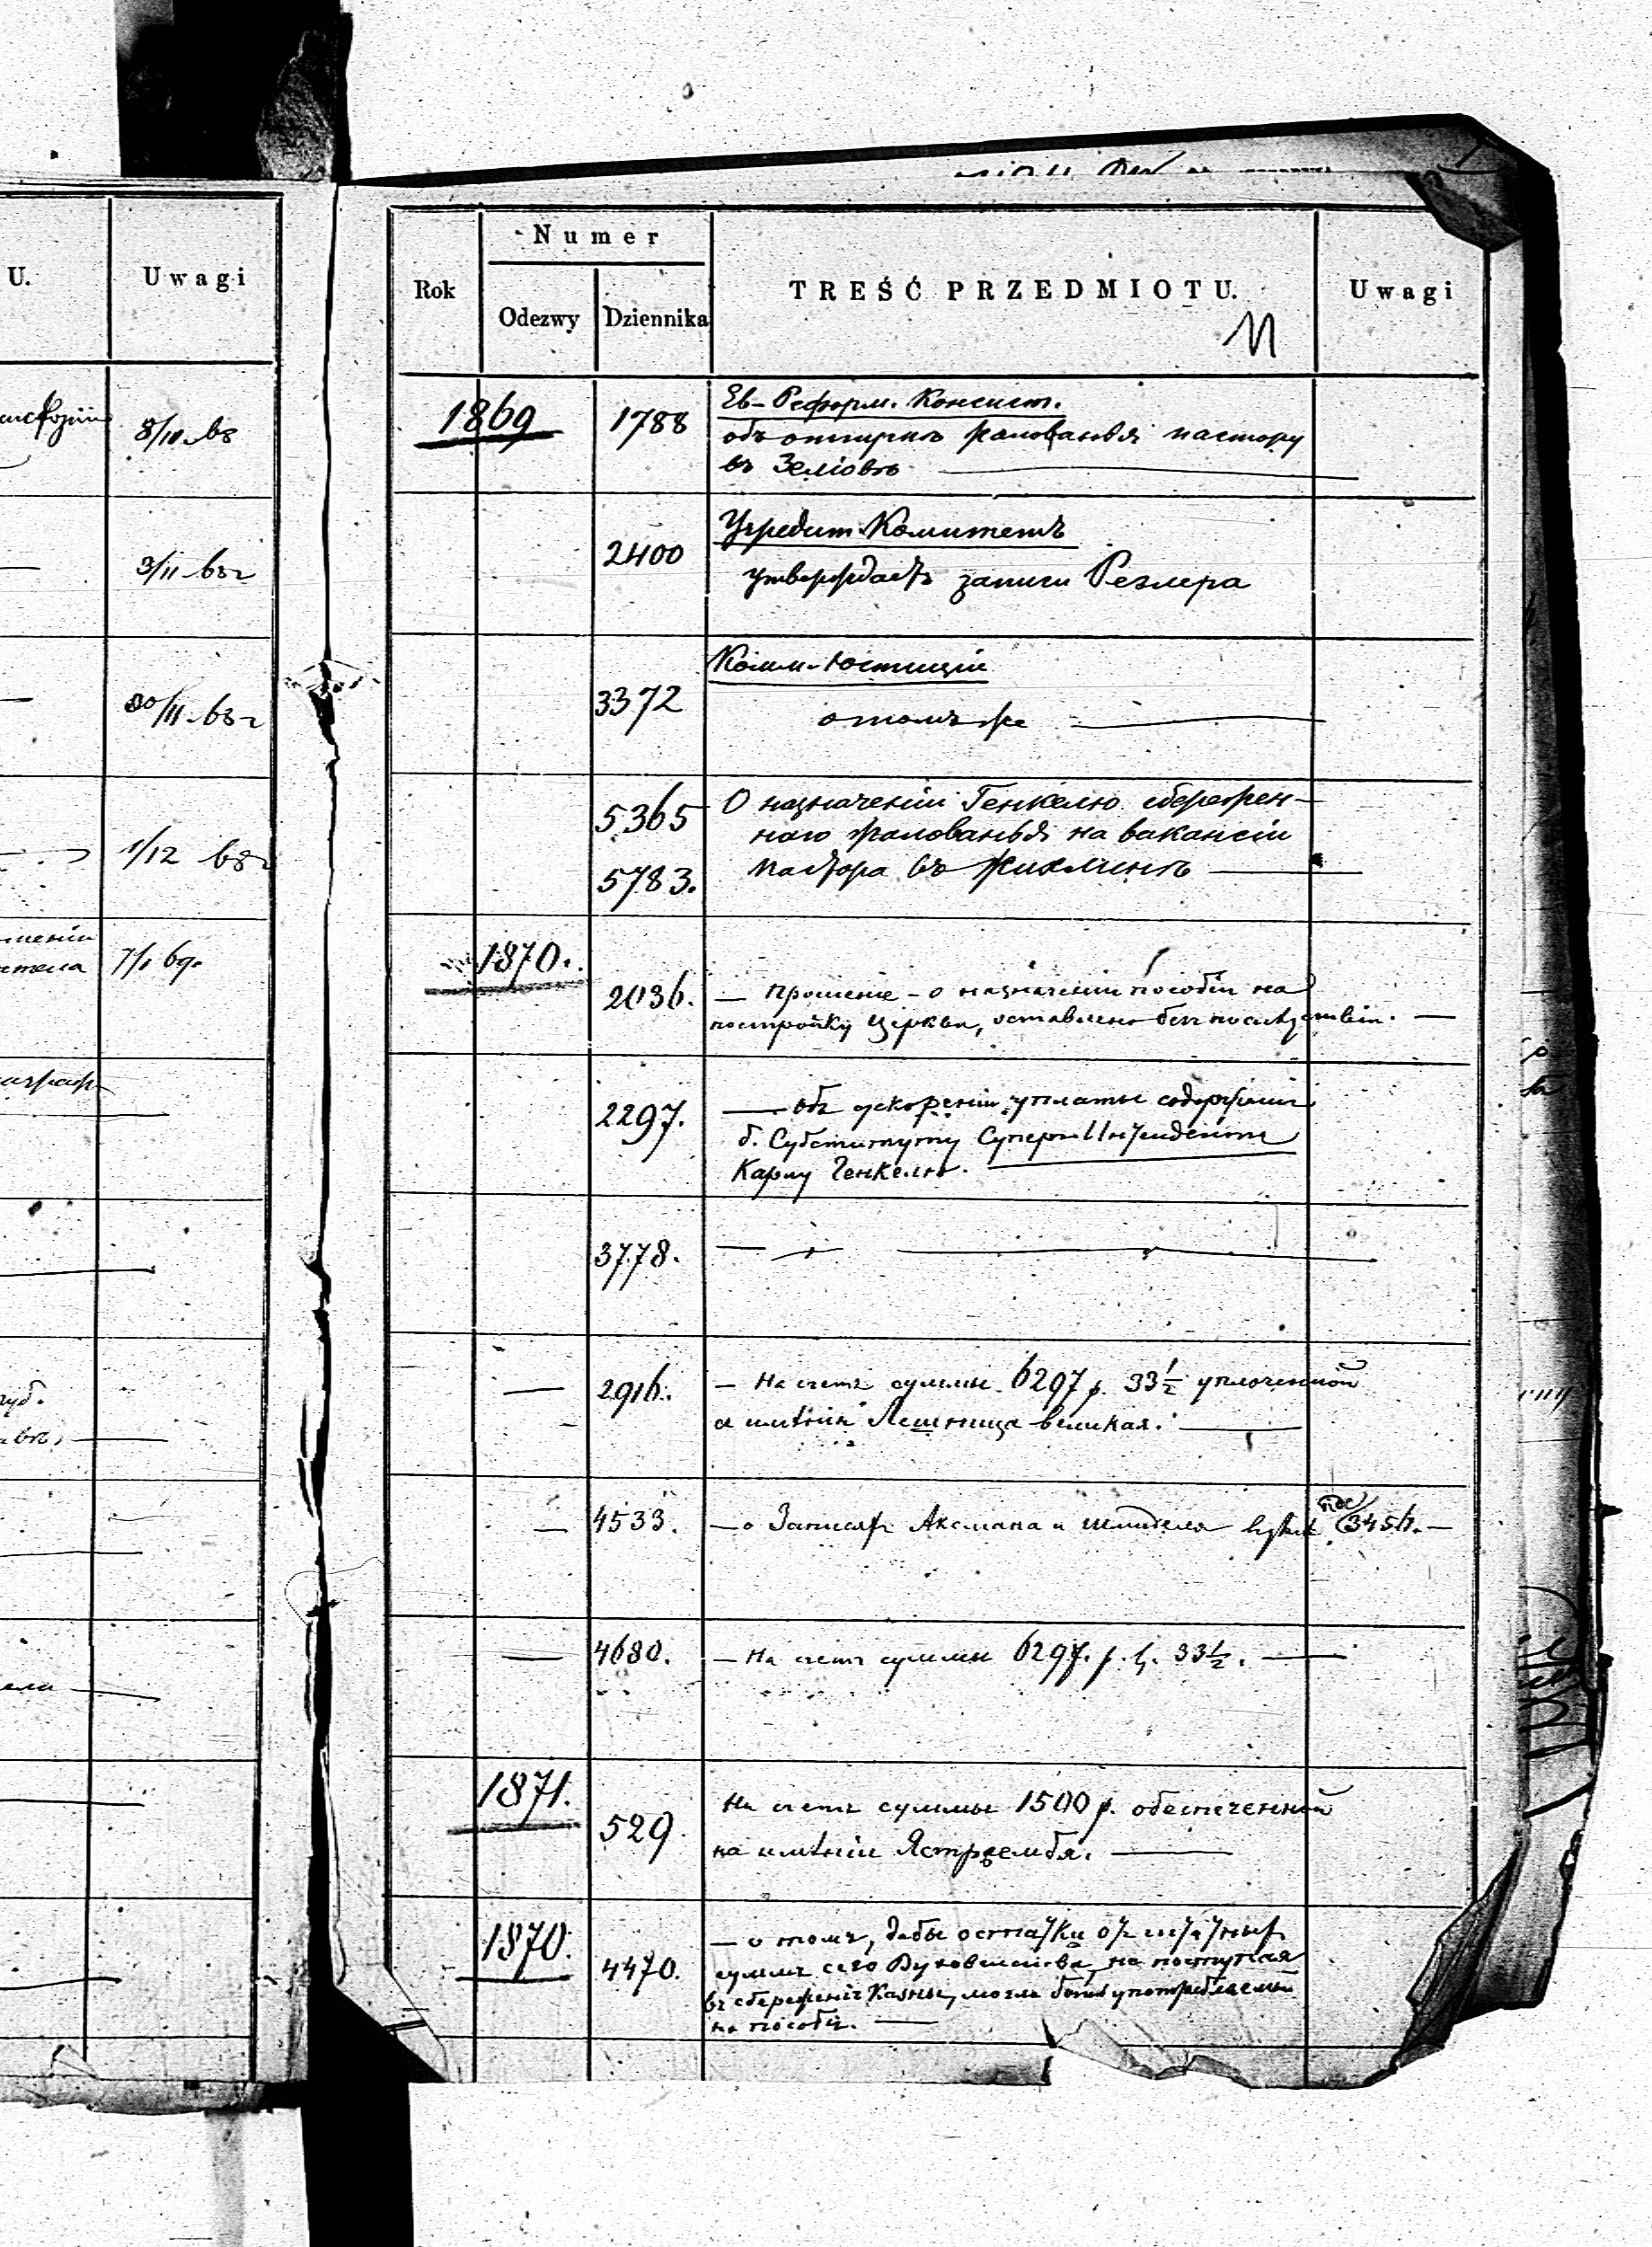 U.
Uwagi
8/10 68
3/11 68 г
30/11 68 г
1/12 68 г
7/1 69.
Numer
Rok
Odezwy
Dziennika
TREŚĆ PRZEDMIOTU.
Uwagi
1869
1788
Ев-Реформ. Консист.
объ жалованья пастору
въ Зеліовѣ
2400
Учредит. Комитетъ
утверждаетъ записи Резлера
3372
Комм. Юстиціи
о томъ же
5365
О назначеніи Генкелю сбережен-
наго жалованья на вакансіи
5783.
пастора въ Жихлинѣ
1870.
2036.
— Прошеніе – о назначеніи пособія на
постройку церкви, оставлено безъ послѣдствій. —
2297.
— объ ускореніи уплаты содержанія
б. Субституту Супер-Интенденту
Карлу Генкелю.
3778.
—
2916.
— На счетъ суммы 6297 р. 33½ уплоченной
имѣнія Лешница великая.
4533.
— о Записяхъ Аксмана и Шмиделя
3456. —
4680.
— На счетъ суммы 6297. р. к. 33½. —
1871.
529.
На счетъ суммы 1500 р. обеспеченной
на имѣніи Ястржембя. —
1870.
4470.
— о томъ, дабы остатки отъ штатныхъ
суммъ сего Духовенства, не поступая
въ сбереженіе Казны, могли быть употребляемы
на пособія. —